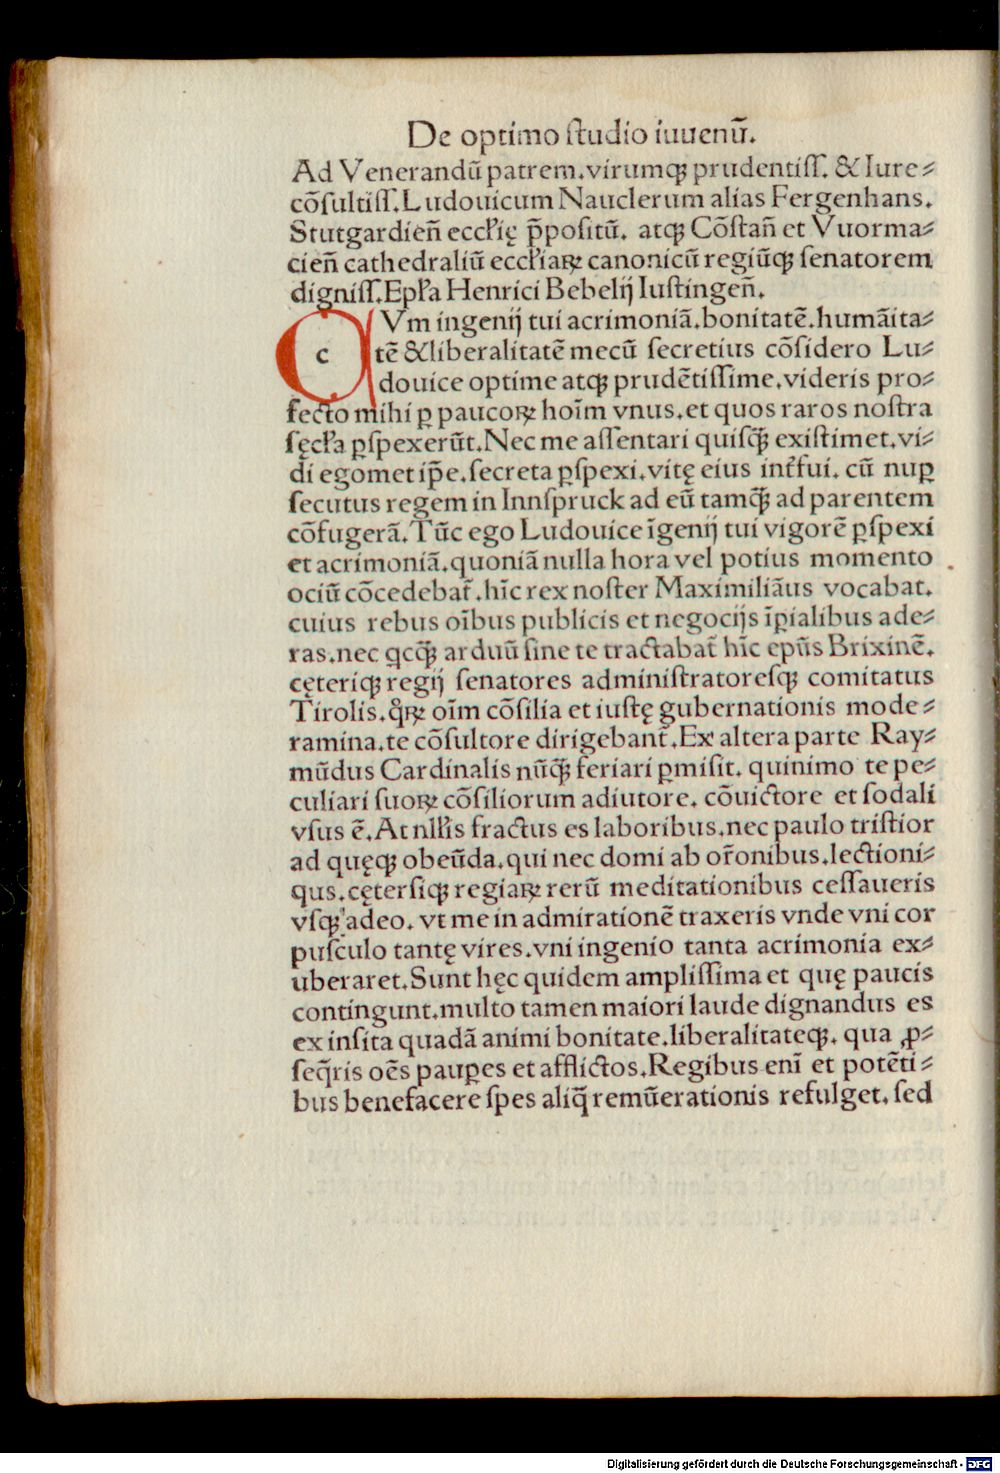 De optimo ſtudio iuuenū.
Ad Venerandū patrem. virumqꝫ prudentiſſ. & Iure⸗
cōſultiſſ. Ludouicum Nauclerum alias Fergenhans.
Stutgardien̄ eccl'ię p̄poſitū. atqꝫ Cōſtan̄ et Vuorma⸗
cien̄ cathedraliū eccl'iaꝝ canonicū regiūqꝫ ſenatorem
digniſſ. Epl'a Henrici Bebelij Iuſtingen̄.
c Vm ingenij tui acrimoniā. bonitatē. humāita⸗
tē & liberalitatē mecū ſecretius cōſidero Lu⸗
douice optime atqꝫ prudētiſſime. videris pro⸗
fecto mihi ꝑ paucoꝝ hoīm vnus. et quos raros noſtra
ſęcl'a ꝑſpexerūt. Nec me aſſentari quiſq̄ꝫ exiſtimet. vi⸗
di egomet ip̄e. ſecreta ꝑſpexi. vitę eius int̄fui. cū nuꝑ
ſecutus regem in Innſpruck ad eū tamq̄ꝫ ad parentem
cōfugerā. Tūc ego Ludouice īgenij tui vigorē ꝑſpexi
et acrimoniā. quoniā nulla hora vel potius momento
ociū cōcedebat̄. hīc rex noſter Maximiliāus vocabat.
cuius rebus oībus publicis et negocijs īꝑialibus ade⸗
ras. nec qcq̄ꝫ arduū ſine te tractabat̄ hīc ep̄us Brixinē.
cęteriqꝫ regij ſenatores adminiſtratoreſqꝫ comitatus
Tirolis. q̊ꝝ oīm cōſilia et iuſtę gubernationis mode⸗
ramina. te cōſultore dirigebant̄. Ex altera parte Ray⸗
mūdus Cardinalis nūq̄ꝫ feriari ꝑmiſit. quinimo te pe⸗
culiari ſuoꝝ cōſiliorum adiutore. cōuictore et ſodali
vſus ē. At nll'is fractus es laboribus. nec paulo triſtior
ad quęqꝫ obeūda. qui nec domi ab or̄onibus. lectioni⸗
qus. cęterſiqꝫ regiaꝝ rerū meditationibus ceſſaueris
vſqꝫ adeo. vt me in admirationē traxeris vnde vni cor
puſculo tantę vires. vni ingenio tanta acrimonia ex⸗
uberaret. Sunt hęc quidem ampliſſima et quę paucis
contingunt. multo tamen maiori laude dignandus es
ex inſita quadā animi bonitate. liberalitateqꝫ. qua ꝓ⸗
ſeq̄ris oēs pauꝑes et afflictos. Regibus enī et potēti⸗
bus benefacere ſpes aliq̄ remūerationis refulget. ſed
Digitalisierung gefördert durch die Deutsche Forschungsgemeinschaft - DFG